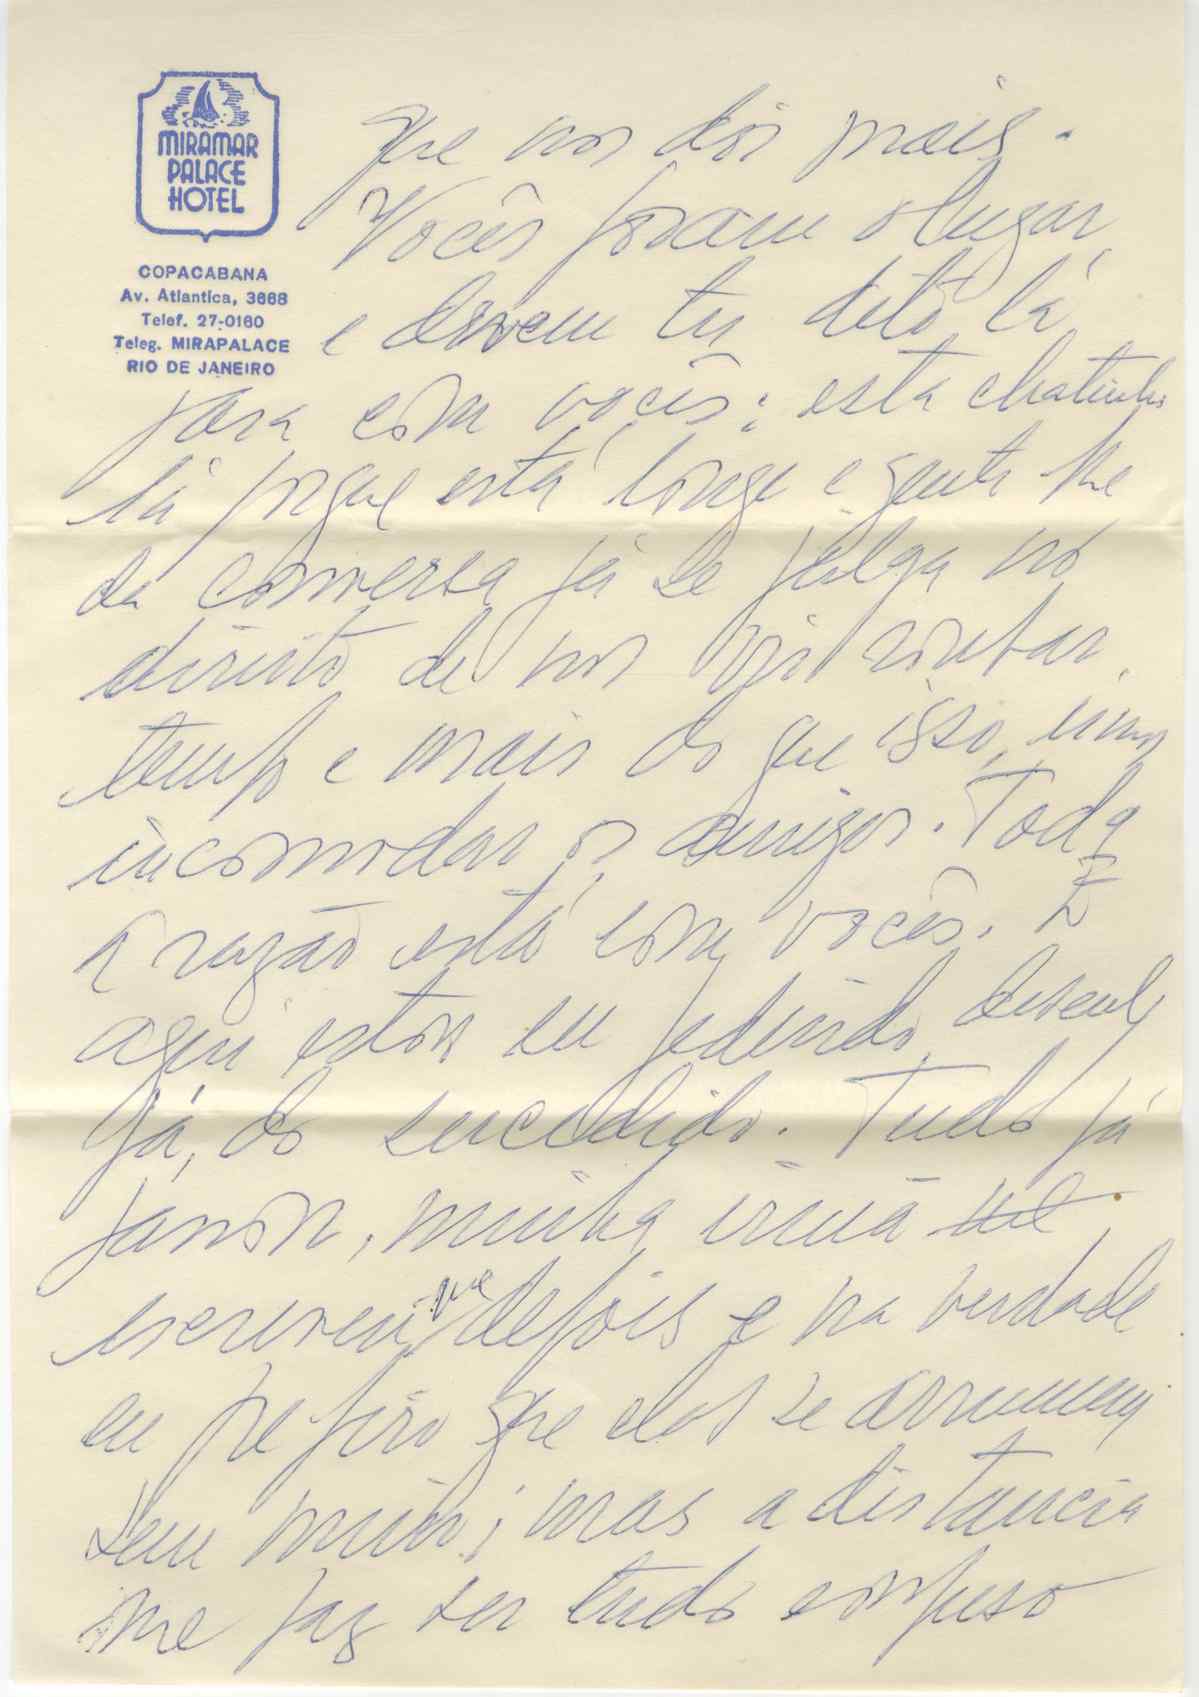 MIRAMAR
PALACE
HOTEL
COPACABANA
Av. Atlantica, 3668
Telef. 27-0160
Teleg. MIRAPALACE
RIO DE JANEIRO
que nos dói mais.
Vocês foram o lugar,
e devem ter dito lá
para com vocês: esta chatinha
lá porque está longe e gente lhe
dá conversa já se julga no
direito de nos roubar
tempo e mais do que isso,
incomodar os amigos. Toda
a razão está com vocês. E
aqui estou eu pedindo desculpa
já, do sucedido. Tudo já
passou, minha irmã
escreveu-me depois e na verdade
eu prefiro que eles se arrumem
sem mim; mas a distancia
me faz ver tudo confuso